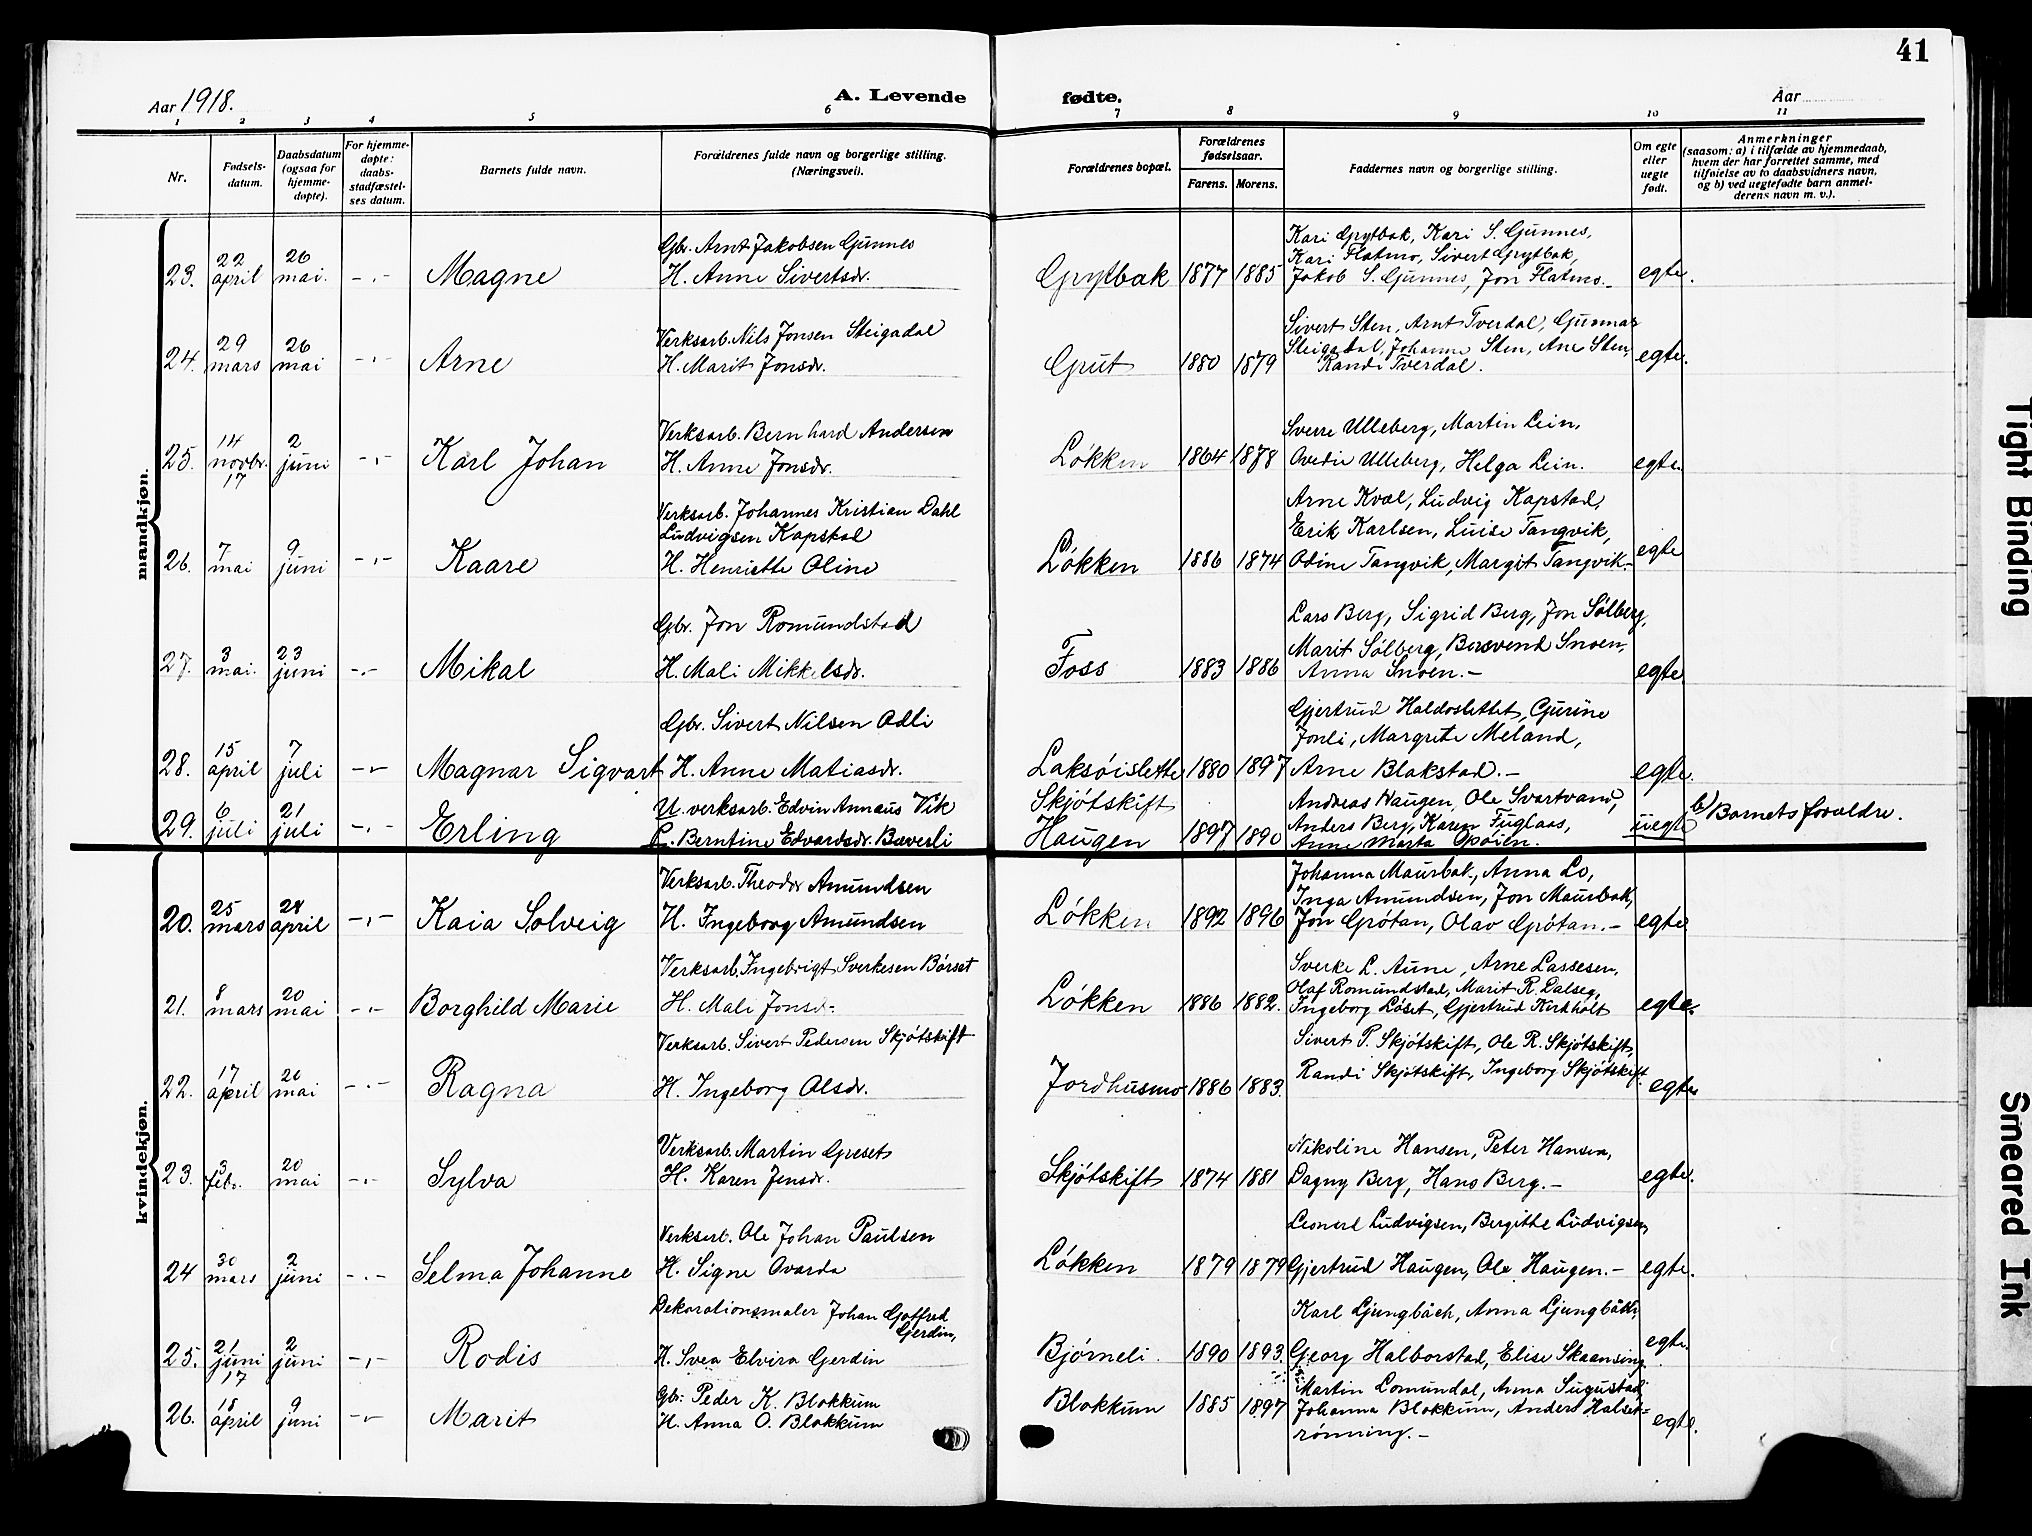 41
Aar 1918.
A. Levende
fødte.
Aar
1 2 3 4 5 6 7 8 9 10 11
Nr.
Fødsels-
datum.
Daabsdatum
(ogsaa for
hjemme-
døpte).
For hjemme-
døpte:
daabs-
stadfæstel-
ses datum.
Barnets fulde navn.
Forældrenes fulde navn og borgerlige stilling.
(Næringsvei).
Forældrenes bopæl.
Forældrenes
fødselsaar.
Farens. Morens.
Faddernes navn og borgerlige stilling.
Om egte
eller
uegte
født.
Anmerkninger
(saasom: a) i tilfælde av hjemmedaab,
hvem der har forrettet samme, med
tilføielse av to daabsvidners navn,
og b) ved uegtefødte barn anmel-
derens navn m. v.).
mandkjøn.
23.
22
april
26
mai.
-,-
Magne
Gbr. Arnt Jakobsen Gunnes
H. Anne Sivertsdr.
Grytbak
1877
1885
Kari Grytbak, Kari S. Gunnes,
Kari Flatmo, Sivert Grytbak,
Jakob S. Gunnes, Jon Flatmo.-
egte.
24.
29
mars
26
mai
-,-
Arne
Verksarb. Nils Jonsen Steigadal
H. Marit Jonsdr.
Grut
1880
1879
Sivert Sten, Arnt Tverdal, Gunnar
Steigadal, Johanne Sten, Ane Sten,
Randi Tverdal.
egte.
25.
14
novbr.
17
2
juni
-,-
Karl Johan
Verksarb. Bernhard Andersen
H. Anne Jonsdr.
Løkken
1864
1878
Sverre Ulleberg, Martin Lein,
Ovedie Ulleberg, Helga Lein.
egte.
26.
7
mai
9
juni
-,-
Kaare
Verksarb. Johannes Kristian Dahl
Ludvigsen Kapskal
H. Henriette Oline
Løkken
1886
1874
Arne Kvæl, Ludvig Kapstad,
Erik Karlsen, Luise Tangvik,
Odine Tangvik, Margit Tangvik.-
egte
27.
3
mai.
23
juni
-,-
Mikal
Gbr. Jon Romundstad
H. Mali Mikkelsdr.
Foss
1883
1886
Lars Berg, Sigrid Berg, Jon Sølberg,
Marit Sølberg, Bersvend Snoen,
Anna Snoen.-
egte
28.
15
april
7
juli
-,-
Magnar Sigvart
Gbr. Sivert Nilsen Odli
H. Anne Matiasdr.
Laksøislette
1880
1897
Gjertrud Haldoslettet, Gurine
Jonli, Margrete Meland,
Arne Blakstad.-
egte.
29.
6
juli
21
juli
-,-
Erling
U. verksarb. Edvin Annæus Vik
P. Berntine Edvardsdr. Bæverli
Skjøtskift
Haugen
1897
1890
Andreas Haugen, Ole Svartvand,
Anders Berg, Karen Fuglaas,
Anne Marta Opøien.
uegte
b) Barnets forældre.
kvindekjøn.
20.
25
mars
24
april
-,-
Kaia Solveig
Verksarb. Theodor Amundsen
H. Ingeborg Amundsen
Løkken
1892
1896
Johanna Maurbak, Anna Lo,
Inga Amundsen, Jon Maurbak,
Jon Grøtan, Olav Grøtan.-
egte
21.
8
mars
20
mai
-,-
Borghild Marie
Verksarb. Ingebrigt Sverkesen Børset
H. Mali Jonsd-
Løkken
1886
1882.
Sverke L. Aune, Arne Lassesen,
Olaf Romundstad, Marit R. Dalseg,
Ingeborg Løset, Gjertrud Kirkholt
egte.
22.
17
april
20
mai
-,-
Ragna
Verksarb. Sivert Pedersen Skjøtskift
H. Ingeborg Olsdr.
Jordhusmo
1886
1883.
Sivert P. Skjøtskift, Ole R. Skjøtskift,
Randi Skjøtskift, Ingeborg Skjøtskift
egte
23.
3
feb.
20
mai
-,-
Sylva
Verksarb. Martin Greset
H. Karen Jensdr.
Skjøtskift
1874
1881
Nikoline Hansen, Peter Hansen,
Dagny Berg, Hans Berg.-
egte.
24
30
mars
2
juni
-,-
Selma Johanne
Verksarb. Ole Johan Paulsen
H. Signe Ovarda
Løkken
1879
1879
Leonerd Ludvigsen, Bergithe Ludvigsen,
Gjertrud Haugen, Ole Haugen.-
egte.
25.
21
juni
17
2
juni
-,-
Rodis
Dekorationsmaler Johan Gotfred
Gerdin,
H. Svea Elvira Gerdin
Bjørneli.
1890
1893.
Karl Ljungbäch, Anna Ljungbäch,
Georg Halborstad, Elise Skaansing
egte.
26.
18
april
9
juni
-,-
Marit
Gbr. Peder K. Blokkum
H. Anna O. Blokkum
Blokkum
1885
1897
Martin Lomundal, Anna Sugustad,
Johanna Blokkum, Anders Halset-
rønning.-
egte.
Tight Binding
Smeared Ink